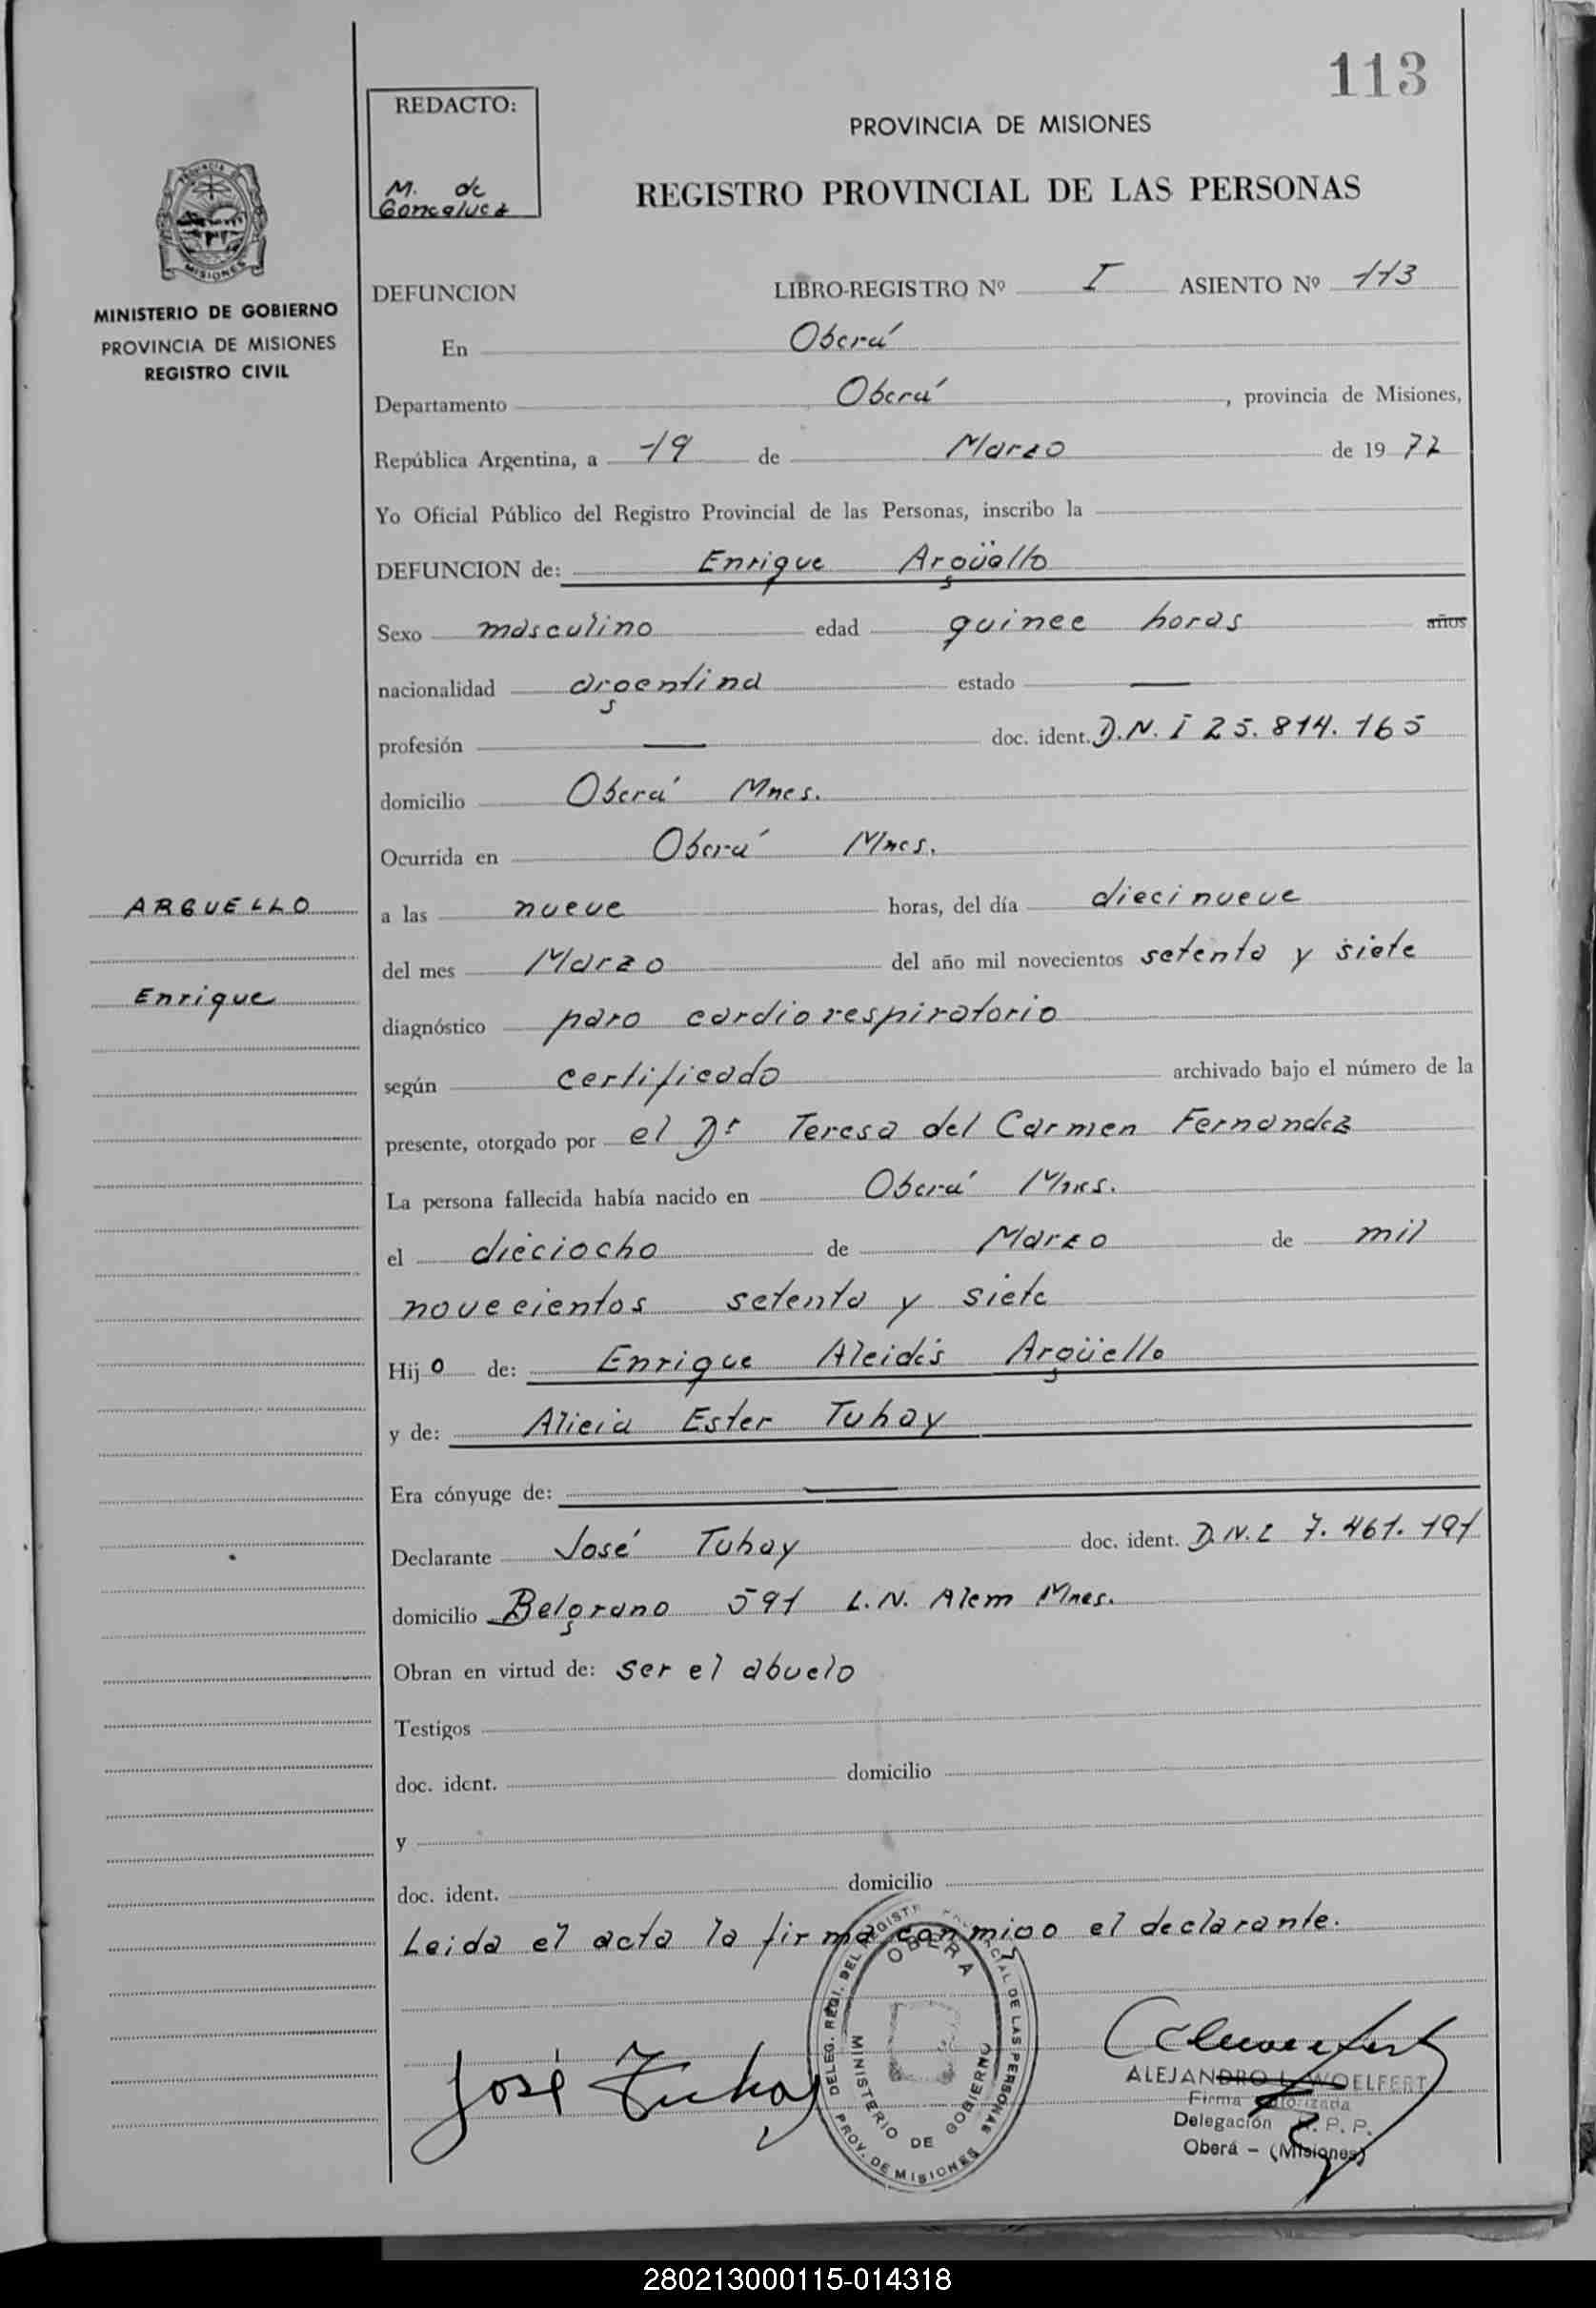 113
REDACTO:
M. de
Goncalvez
PROVINCIA DE MISIONES
REGISTRO PROVINCIAL DE LAS PERSONAS
PROVINCIA
MISIONES
MINISTERIO DE GOBIERNO
PROVINCIA DE MISIONES
REGISTRO CIVIL
DEFUNCION LIBRO-REGISTRO Nº I ASIENTO Nº 113
En Oberá
Departamento Oberá, provincia de Misiones,
República Argentina, a 19 de Marzo de 19 77
Yo Oficial Público del Registro Provincial de las Personas, inscribo la
DEFUNCION de: Enrique Argüello
Sexo masculino edad quince horas años
nacionalidad argentina estado —
profesión — doc. ident. D.N.I 25.814.165
domicilio Oberá Mnes.
Ocurrida en Oberá Mnes.
ARGUELLO
Enrique
a las nueve horas, del día diecinueve
del mes Marzo del año mil novecientos setenta y siete
diagnóstico paro cardiorespiratorio
según certificado archivado bajo el número de la
presente, otorgado por el Dr Teresa del Carmen Fernandez
La persona fallecida había nacido en Oberá Mnes.
el dieciocho de Marzo de mil
novecientos setenta y siete
Hijo de: Enrique Alcidés Argüello
y de: Alicia Ester Tuhay
Era cónyuge de: —
Declarante José Tuhay doc. ident. D.N.I 7.461.191
domicilio Belgrano 591 L.N. Alem Mnes.
Obran en virtud de: ser el abuelo
Testigos
doc. ident. domicilio
y
doc. ident. domicilio
Leida el acta la firma conmigo el declarante.
José Tuhay
DELEG. REGI. DEL REGISTR PROVINCIAL DE LAS PERSONAS
OBERA
MINISTERIO DE GOBIERNO
PROV. DE MISIONES
ALEJANDRO L. WOELFERT
Firma Autorizada
Delegación R.P.P.
Oberá - (Misiones)
280213000115-014318